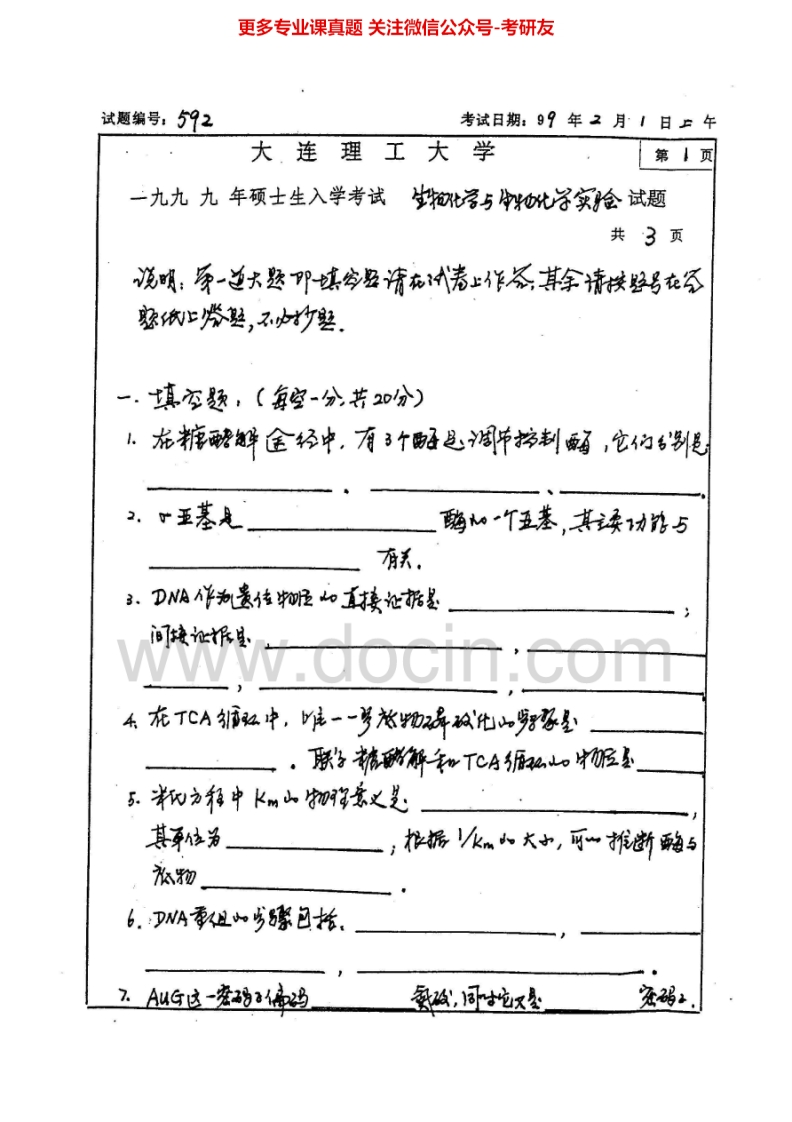 更多专业课真题 关注微信公众号-考研友
试题编号：592 考试日期：99 年 2 月 1 日 上 午
大 连 理 工 大 学 第 1 页
一九九 九 年硕士生入学考试 生物化学与生物化学实验 试题
共 3 页
说明：第一道大题即填空题请在试卷上作答，其余请按题号在答
题纸上答题，不必抄题．
一．填空题：（每空一分，共20分）
1．在糖酵解途经中，有3个酶是调节控制酶，它们分别是
、 、 ．
2．σ亚基是 酶的一个亚基，其主要功能与
有关．
3．DNA作为遗传物质的直接证据是 ；
间接证据是 ，
， ， ．
4．在TCA循环中，唯一一步底物磷酸化的步骤是
．联系糖酵解和TCA循环的物质是
5．米氏方程中Km的物理意义是 ，
其单位为 ；根据1/Km的大小，可以推断酶与
底物 ．
6．DNA重组的步骤包括． ，
， ．
7．AUG这一密码子编码 氨酸，同时它又是 密码子．
www.docin.com